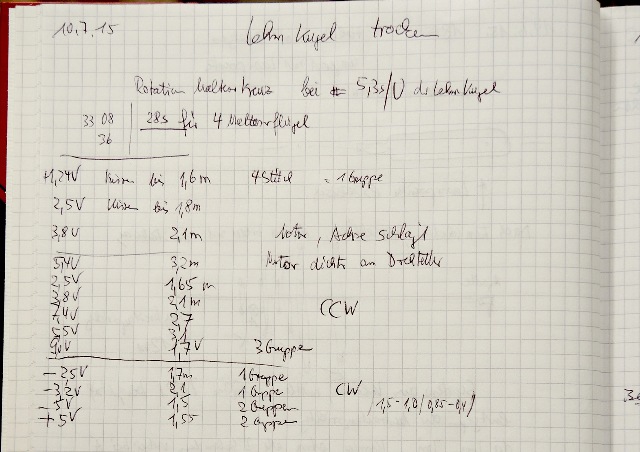 10.7.15 Lehm Kugel trocken
Rotation Malteser Kreuz bei 5,3s/U d. Lehm Kugel
33 08 28s für 4 Malteserflügel
36
+1,24V Kissen bis 1,6m 4 Stück = 1 Gruppe
2,5V Kissen bis 1,8m
3,8V 2,1m Motor, Achse schlägt
5,4V 3,2m Motor dichter am Drehteller
2,5V 1,65m
3,8V 2,1m
7,4V 2,7 CCW
5,5V 3,1
1,7V 3 Gruppe
-2,5V 1,7m 1 Gruppe
-3,2V 2,1 1 Gruppe CW
-5V 1,5 2 Gruppen 1,5-1,0/0,85-0,4
+5V 1,55 2 Gruppen